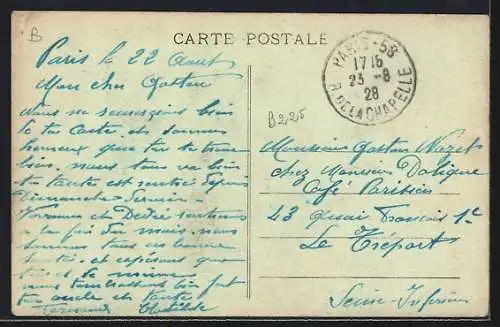 B
CARTE POSTALE
PARIS - 58
1715
23 - 8
28
R. DE LA CHAPELLE
Paris le 22 Août
Mon cher Gaston
Nous te remercions bien
de ta Carte et sommes
heureux que tu te trouve
bien. nous tous va bien
ta tante est rentré depuis
Dimanche dernier
et Dédée
à la fin du mois. nous
sommes tous en bonne
santé et espérons que
toi et de même
nous t'embrassons bien fort
ton oncle et tante
Clotilde
B225
Monsieur Gaston
chez Monsieur
Café Parisien
43 Quai François 1er
Le Tréport
Seine-Inférieure